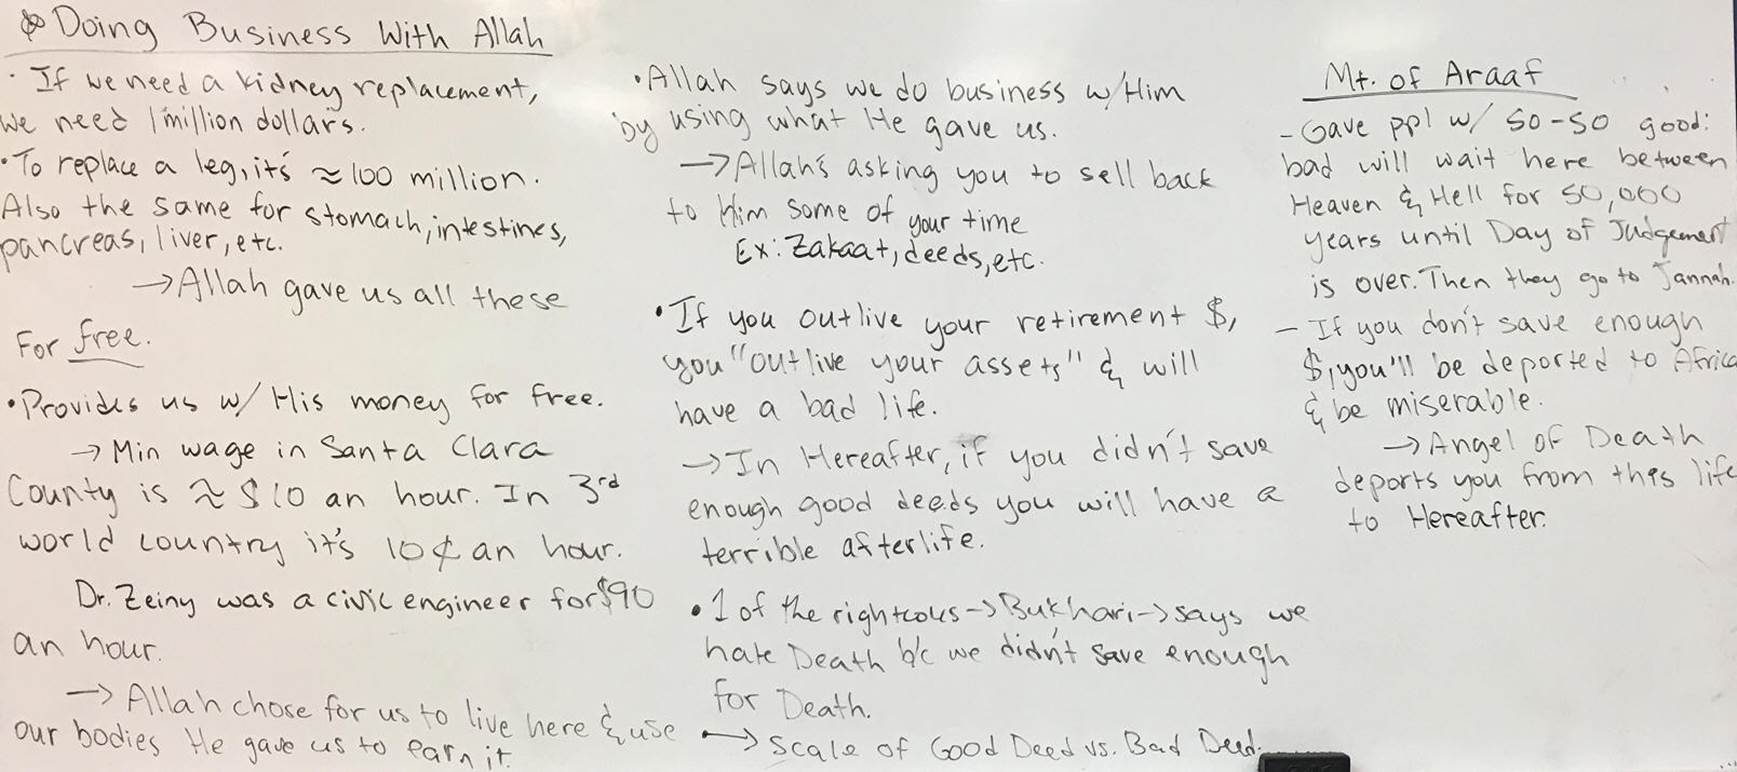 Doing Business With Allah
· If we need a kidney replacement,
we need 1 million dollars.
· To replace a leg, it's ≈ 100 million.
Also the same for stomach, intestines,
pancreas, liver, etc.
→ Allah gave us all these
For free.
· Provides us w/ His money for free.
→ Min wage in Santa Clara
County is ≈ $10 an hour. In 3rd
world country it's 10¢ an hour.
Dr. Zeiny was a civic engineer for $90
an hour.
→ Allah chose for us to live here & use
our bodies He gave us to earn it.
· Allah says we do business w/ Him
by using what He gave us.
→ Allah's asking you to sell back
to Him some of your time
Ex: Zakaat, deeds, etc.
· If you outlive your retirement $,
you "outlive your assets" & will
have a bad life.
→ In Hereafter, if you didn't save
enough good deeds you will have a
terrible afterlife.
· 1 of the righteous → Bukhari → says we
hate Death b/c we didn't save enough
for Death.
→ Scale of Good Deed vs. Bad Deed.
Mt. of Araaf
- Gave ppl w/ 50-50 good:
bad will wait here between
Heaven & Hell for 50,000
years until Day of Judgement
is over. Then they go to Jannah.
- If you don't save enough
$, you'll be deported to Africa
& be miserable.
→ Angel of Death
deports you from this life
to Hereafter.